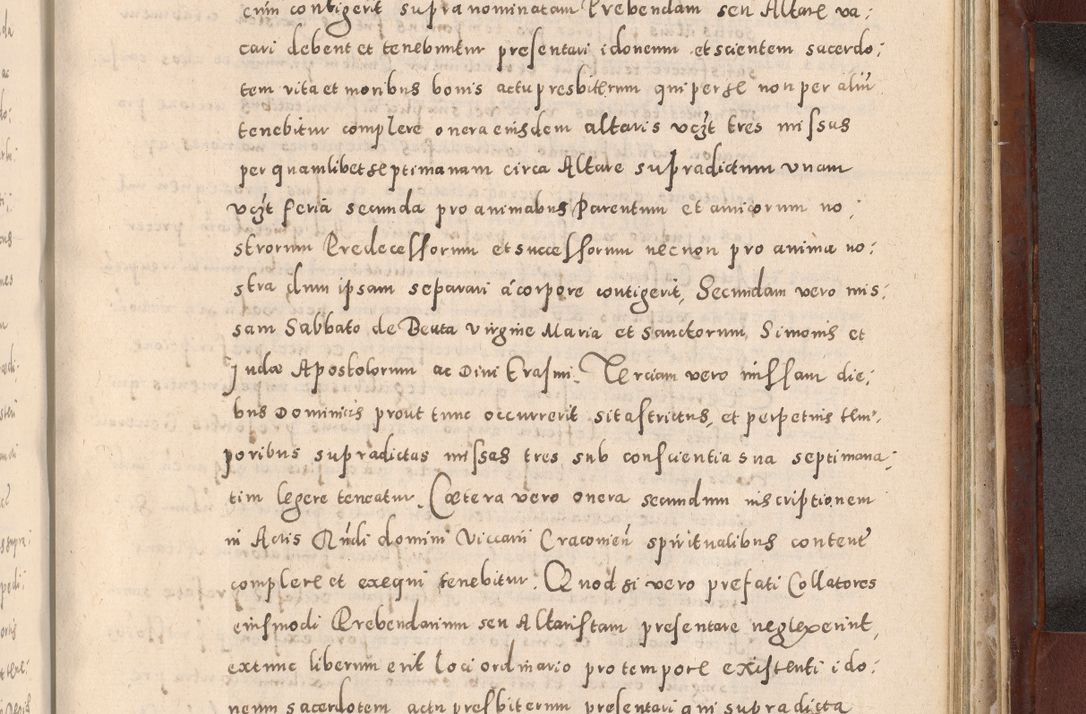 cum contigerit supra nominatam Prebendam seu Altare va:
cari debent et tenebuntur presentari idoneum et scientem sacerdo:
tem vita et moribus bonis actu presbiterum qui per se non per aliū
tenebitur complere onera eiusdem altaris vcʒt tres missas
per quamlibet septimanam circa Altare supradictum unam
vcʒt feria secunda pro animabus Parentum et amicorum no:
strorum Predecessorum et successorum nec non pro anima no:
stra dum ipsam separari á corpore contigerit, Secundam vero mis:
sam Sabbato de Beata Virgine Maria et Sanctorum Simonis et
Judæ Apostolorum ac Divi Erasmi. Terciam vero missam die:
bus Dominicis prout tunc occurrerit sit astrictus, et perpetuis tem:
poribus supradictas missas tres sub conscientia sua septimana:
tim legere teneatur. Cætera vero onera secundum inscriptionem
in Actis Rndi domini Viccarii Cracouień spiritualibus content
complere et exequi tenebitur. Quod si vero prefati Collatores
eiusmodi Prebendarium seu Altaristam presentare neglexerint,
extunc liberum erit loci ordinario pro tempore existenti ido:
neum sacerdotem actu presbiterum presentari qui supradicta